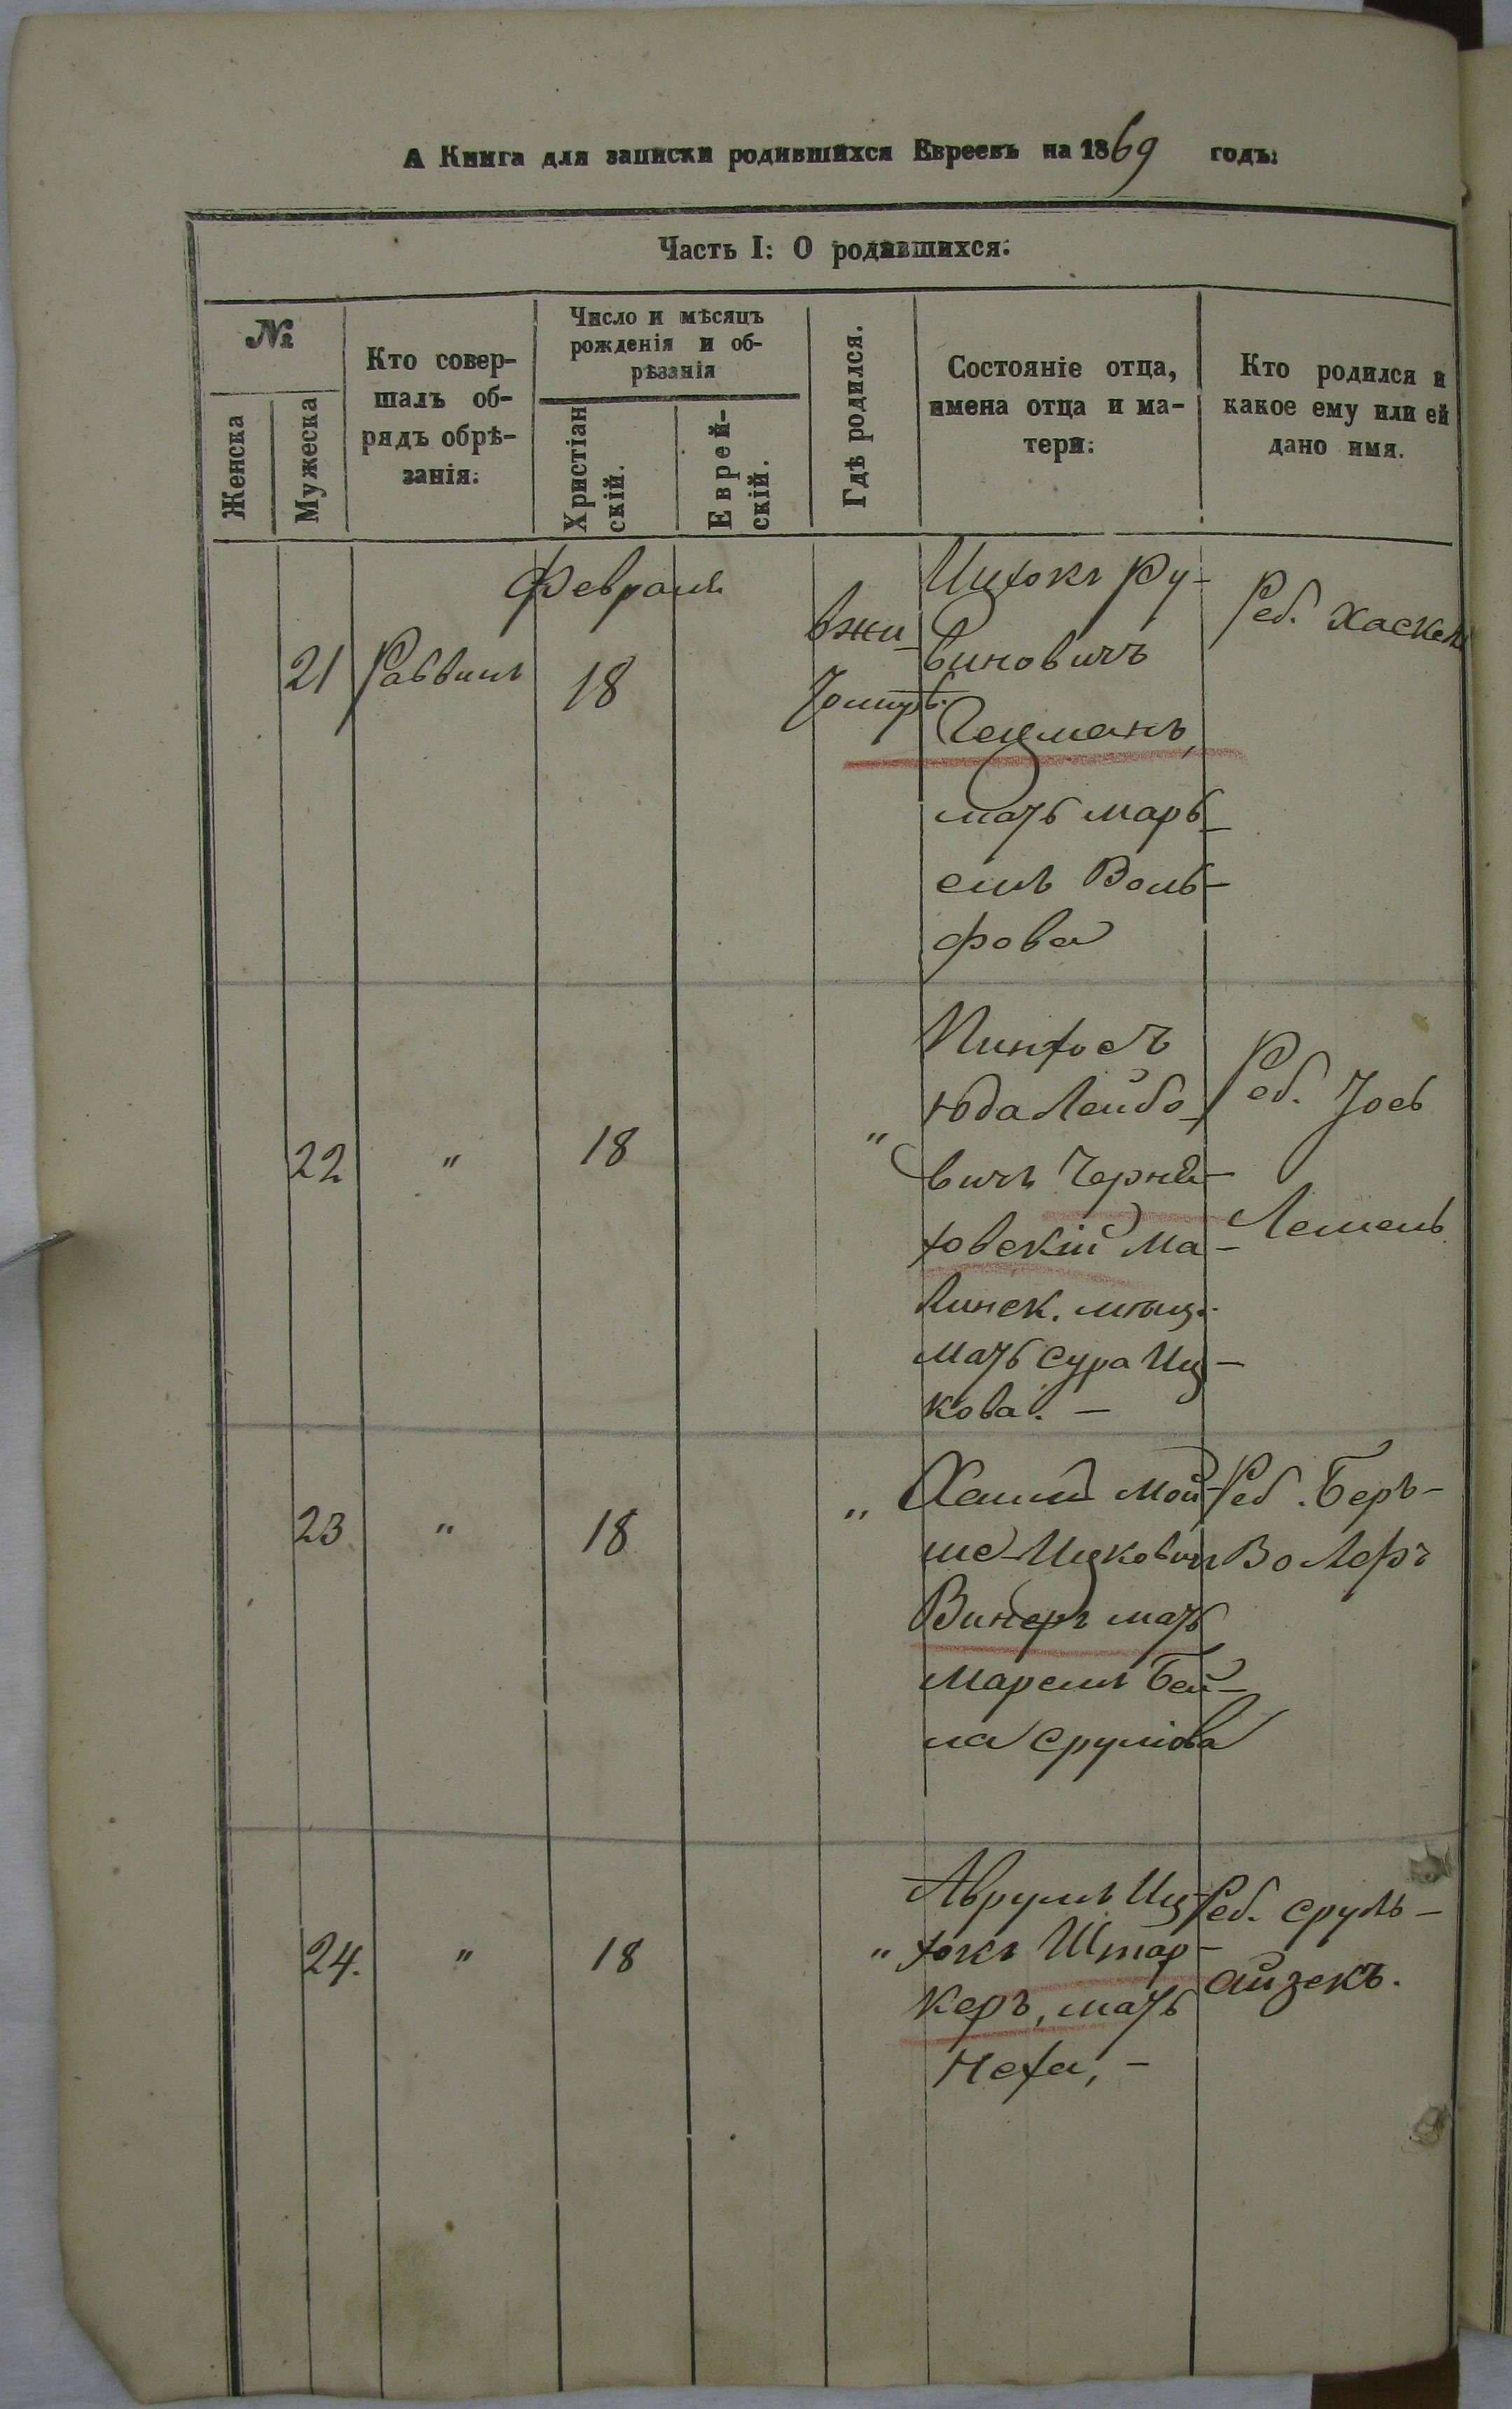 А Книга для записки родившихся Евреевъ на 1869 годъ:
Часть I: О родившихся:
№
Женска
Мужеска
Кто совер-
шалъ об-
рядъ обрѣ-
занія:
Число и мѣсяцъ
рожденія и об-
рѣзанія
Христіан
скій.
Еврей-
скій.
Гдѣ родился.
Состояніе отца,
имена отца и ма-
тери:
Кто родился и
какое ему или ей
дано имя.
Февраля
21
Раввинъ
18
вжи-
томирѣ.
Ицхокъ Ру-
виновичъ
Гецманъ,
мать марь-
емъ Воль-
фова
Реб. Хаскель
22
"
18
"
Пинхосъ
Юда Лейбо-
вичъ Черня-
ховскій Ма-
линск. мѣщ.
Мать Сура Иц-
кова. -
Реб. Іось
Лемель
23
"
18
"
Хаимъ Мой-
ше-Ицковичъ
Винеръ мать
Маремъ Бей-
ла Срулiова
Реб. Беръ-
Волфъ
24.
"
18
"
Аврумъ Иц-
хокъ Штар-
керъ, мать
Неха, -
Реб. Сруль-
Айзекъ.